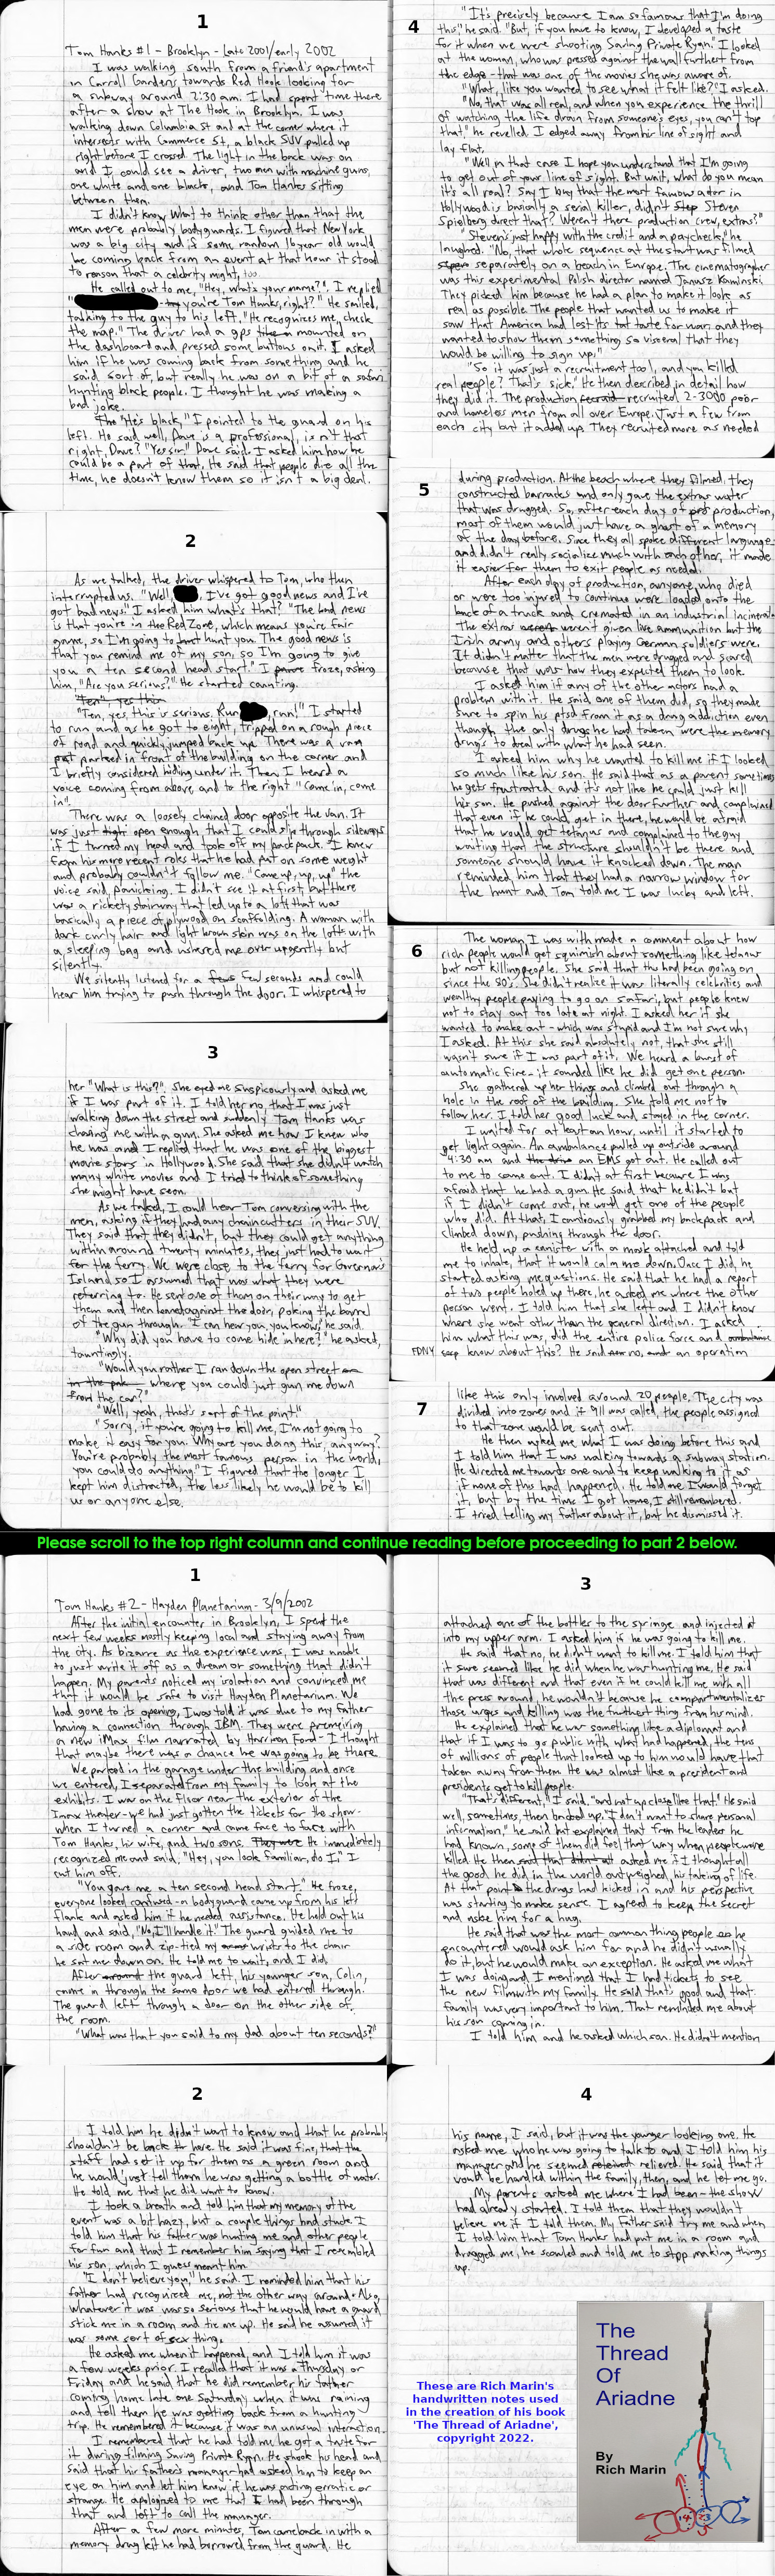 1
Tom Hanks #1 - Brooklyn - Late 2001/early 2002
I was walking south from a friend's apartment
in Carroll Gardens towards Red Hook looking for
a subway around 2:30 am. I had spent time there
after a show at The Hook in Brooklyn. I was
walking down Columbia St and at the corner where it
intersects with Commerce St, a black SUV pulled up
right before I crossed. The light in the back was on
and I could see a driver, two men with machine guns,
one white and one black, and Tom Hanks sitting
between them.
I didn't know what to think other than that the
men were probably bodyguards. I figured that New York
was a big city and if some random 16 year old would
be coming back from an event at that hour it stood
to reason that a celebrity might, too.
He called out to me, "Hey, what's your name?". I replied
"you're Tom Hanks, right?" He smiled,
talking to the guy to his left, "He recognizes me, check
the map." The driver had a gps mounted on
the dashboard and pressed some buttons on it. I asked
him if he was coming back from something and he
said sort of, but really he was on a bit of a safari
hunting black people. I thought he was making a
bad joke.
"He's black," I pointed to the guard on his
left. He said well, Dave is a professional, isn't that
right, Dave? "Yessir" Dave said. I asked him how he
could be a part of that. He said that people die all the
time, he doesn't know them so it isn't a big deal.
2
As we talked, the driver whispered to Tom, who then
interrupted us. "Well, I've got good news and I've
got bad news." I asked him what's that? "The bad news
is that you're in the Red Zone, which means you're fair
game, so I'm going to hunt you. The good news is
that you remind me of my son, so I'm going to give
you a ten second head start." I froze, asking
him "Are you serious?" He started counting.
"Ten" yes this
"Ten, yes this is serious. Run, run!" I started
to run and as he got to eight, tripped on a rough piece
of road and quickly jumped back up. There was a van
parked in front of the building on the corner and
I briefly considered hiding under it. Then I heard a
voice coming from above, and to the right "Come in, come
in".
There was a loosely chained door opposite the van. It
was just open enough that I could slip through sideways
if I turned my head and took off my backpack. I knew
from his more recent roles that he had put on some weight
and probably couldn't follow me. "Come up, up" the
voice said, panicking. I didn't see it at first, but there
was a rickety stairway that led up to a loft that was
basically a piece of plywood on scaffolding. A woman with
dark curly hair and light brown skin was on the loft with
a sleeping bag and ushered me over urgently but
silently.
We silently listened for a few seconds and could
hear him trying to push through the door. I whispered to
3
her "What is this?". She eyed me suspiciously and asked me
if I was part of it. I told her no, that I was just
walking down the street and suddenly Tom Hanks was
chasing me with a gun. She asked me how I knew who
he was and I replied that he was one of the biggest
movie stars in Hollywood. She said that she didn't watch
many white movies and I tried to think of something
she might have seen.
As we talked, I could hear Tom conversing with the
men, asking if they had any chain cutters in their SUV.
They said that they didn't, but they could get anything
within around twenty minutes, they just had to wait
for the ferry. We were close to the ferry for Governor's
Island so I assumed that was what they were
referring to. He sent one of them on their way to get
them and then leaned against the door, poking the barrel
of the gun through. "I can hear you, you know," he said.
"Why did you have to come hide in here?" he asked,
tauntingly.
"Would you rather I ran down the open street
where you could just gun me down
from the car?"
"Well, yeah, that's sort of the point."
"Sorry, if you're going to kill me, I'm not going to
make it easy for you. Why are you doing this, anyway?
You're probably the most famous person in the world,
you could do anything." I figured that the longer I
kept him distracted, the less likely he would be to kill
us or anyone else.
4
"It's precisely because I am so famous that I'm doing
this," he said. "But, if you have to know, I developed a taste
for it when we were shooting Saving Private Ryan." I looked
at the woman, who was pressed against the wall furthest from
the edge - that was one of the movies she was aware of.
"What, like you wanted to see what it felt like?" I asked.
"No, that was all real, and when you experience the thrill
of watching the life drain from someone's eyes, you can't top
that," he revelled. I edged away from his line of sight and
lay flat.
"Well in that case I hope you understand that I'm going
to get out of your line of sight. But wait, what do you mean
it's all real? Say I buy that the most famous actor in
Hollywood is basically a serial killer, didn't Steven
Spielberg direct that? Weren't there production crew, extras?"
"Steven's just happy with the credit and a paycheck," he
laughed. "No, that whole sequence at the start was filmed
separately on a beach in Europe. The cinematographer
was this experimental Polish director named Janusz Kaminski.
They picked him because he had a plan to make it look as
real as possible. The people that wanted us to make it
saw that America had lost its taste for war, and they
wanted to show them something so visceral that they
would be willing to sign up."
"So it was just a recruitment tool, and you killed
real people? That's sick." He then described in detail how
they did it. The production recruited 2-3000 poor
and homeless men from all over Europe. Just a few from
each city but it added up. They recruited more as needed
5
during production. At the beach where they filmed, they
constructed barracks and only gave the extras water
that was drugged. So, after each day of production,
most of them would just have a ghost of a memory
of the day before. Since they all spoke different languages
and didn't really socialize much with each other, it made
it easier for them to exit people as needed.
After each day of production, anyone who died
or were too injured to continue were loaded onto the
back of a truck and cremated in an industrial incinerator.
The extras weren't given live ammunition but the
Irish army and others playing German soldiers were.
It didn't matter that the men were drugged and scared
because that was how they expected them to look.
I asked him if any of the other actors had a
problem with it. He said one of them did, so they made
sure to spin his ptsd from it as a drug addiction even
though the only drugs he had taken were the memory
drugs to deal with what he had seen.
I asked him why he wanted to kill me if I looked
so much like his son. He said that as a parent sometimes
he gets frustrated and it's not like he could just kill
his son. He pushed against the door further and complained
that even if he could get in there, he would be afraid
that he would get tetanus and complained to the guy
waiting that the structure shouldn't be there and
someone should have it knocked down. The man
reminded him that they had a narrow window for
the hunt and Tom told me I was lucky and left.
6
The woman I was with made a comment about how
rich people would get squeamish about something like tetanus
but not killing people. She said that this had been going on
since the 80's. She didn't realize it was literally celebrities and
wealthy people paying to go on safari, but people knew
not to stay out too late at night. I asked her if she
wanted to make out - which was stupid and I'm not sure why
I asked. At this she said absolutely not, that she still
wasn't sure if I was part of it. We heard a burst of
automatic fire - it sounded like he did get one person.
She gathered up her things and climbed out through a
hole in the roof of the building. She told me not to
follow her. I told her good luck and stayed in the corner.
I waited for at least an hour, until it started to
get light again. An ambulance pulled up outside around
4:30 am and an EMS got out. He called out
to me to come out. I didn't at first because I was
afraid that he had a gun. He said that he didn't but
if I didn't come out, he would get one of the people
who did. At that, I cautiously grabbed my backpack and
climbed down, pushing through the door.
He held up a canister with a mask attached and told
me to inhale, that it would calm me down. Once I did, he
started asking me questions. He said that he had a report
of two people holed up there, he asked me where the other
person went. I told him that she left and I didn't know
where she went other than the general direction. I asked
him what this was, did the entire police force and
FDNY know about this? He said no, an operation
7
like this only involved around 20 people. The city was
divided into zones and if 911 was called, the people assigned
to that zone would be sent out.
He then asked me what I was doing before this and
I told him that I was walking towards a subway station.
He directed me towards one and to keep walking to it as
if none of this had happened. He told me I would forget
it, but by the time I got home, I still remembered.
I tried telling my father about it, but he dismissed it.
Please scroll to the top right column and continue reading before proceeding to part 2 below.
1
Tom Hanks #2 - Hayden Planetarium - 3/9/2002
After the initial encounter in Brooklyn, I spent the
next few weeks mostly keeping local and staying away from
the city. As bizarre as the experience was, I was unable
to just write it off as a dream or something that didn't
happen. My parents noticed my isolation and convinced me
that it would be safe to visit Hayden Planetarium. We
had gone to its opening, I was told it was due to my father
having a connection through IBM. They were premeiring
a new iMax film narrated by Harrison Ford - I thought
that maybe there was a chance he was going to be there.
We parked in the garage under the building and once
we entered, I separated from my family to look at the
exhibits. I was on the floor near the exterior of the
Imax theater - we had just gotten the tickets for the show -
when I turned a corner and came face to face with
Tom Hanks, his wife, and two sons. They were He immediately
recognized me and said, "Hey, you look familiar, do I," I
cut him off.
"You gave me a ten second head start." He froze,
everyone looked confused - a bodyguard came up from his left
flank and asked him if he needed assistance. He held out his
hand and said, "No, I'll handle it." The guard guided me to
a side room and zip-tied my wrists to the chair
he sat me down on. He told me to wait, and I did.
After the guard left, his younger son, Colin,
came in through the same door we had entered through.
The guard left through a door on the other side of
the room.
"What was that you said to my dad about ten seconds?"
2
I told him he didn't want to know and that he probably
shouldn't be back here. He said it was fine, that the
staff had set it up for them as a green room and
he would just tell them he was getting a bottle of water.
He told me that he did want to know.
I took a breath and told him that my memory of the
event was a bit hazy, but a couple things had stuck. I
told him that his father was hunting me and other people
for fun and that I remember him saying that I resembled
his son, which I guess meant him.
"I don't believe you," he said. I reminded him that his
father had recognized me, not the other way around. Also,
whatever it was was so serious that he would have a guard
stick me in a room and tie me up. He said he assumed it
was some sort of sex thing.
He asked me when it happened, and I told him it was
a few weeks prior. I recalled that it was a Thursday or
Friday and he said that he did remember his father
coming home late one Saturday when it was raining
and tell them he was getting back from a hunting
trip. He remembered it because it was an unusual interaction.
I remembered that he had told me he got a taste for
it during filming Saving Private Ryan. He shook his head and
said that his father's manager had asked him to keep an
eye on him and let him know if he was acting erratic or
strange. He apologized to me that I had been through
that and left to call the manager.
After a few more minutes, Tom came back in with a
memory drug kit he had borrowed from the guard. He
3
attached one of the bottles to the syringe and injected it
into my upper arm. I asked him if he was going to kill me.
He said that no, he didn't want to kill me. I told him that
it sure seemed like he did when he was hunting me. He said
that was different and that even if he could kill me with all
the press around, he wouldn't because he compartmentalizes
those urges and killing was the furthest thing from his mind.
He explained that he was something like a diplomat and
that if I was to go public with what had happened, the tens
of millions of people that looked up to him would have that
taken away from them. He was almost like a president and
presidents get to kill people.
"That's different," I said, "and not up close like that." He said
well, sometimes, then bobbed up. "I don't want to share personal
information," he said but explained that from the leaders he
had known, some of them did feel that way when people were
killed. He then asked me if I thought all
the good he did in the world outweighed his taking of life.
At that point the drugs had kicked in and his perspective
was starting to make sense. I agreed to keep the secret
and aske him for a hug.
He said that was the most common thing people he
encountered would ask him for and he didn't usually
do it, but he would make an exception. He asked me what
I was doing and I mentioned that I had tickets to see
the new film with my family. He said that's good and that
family was very important to him. That reminded me about
his son coming in.
I told him and he asked which son. He didn't mention
4
his name, I said, but it was the younger looking one. He
asked me who he was going to talk to and I told him his
manager and he seemed relieved. He said that it
would be handled within the family, then, and he let me go.
My parents asked me where I had been - the show
had already started. I told them that they wouldn't
believe me if I told them. My father said try me and when
I told him that Tom Hanks had put me in a room and
drugged me, he scowled and told me to stop making things
up.
These are Rich Marin's
handwritten notes used
in the creation of his book
'The Thread of Ariadne',
copyright 2022.
The
Thread
Of
Ariadne
By
Rich Marin